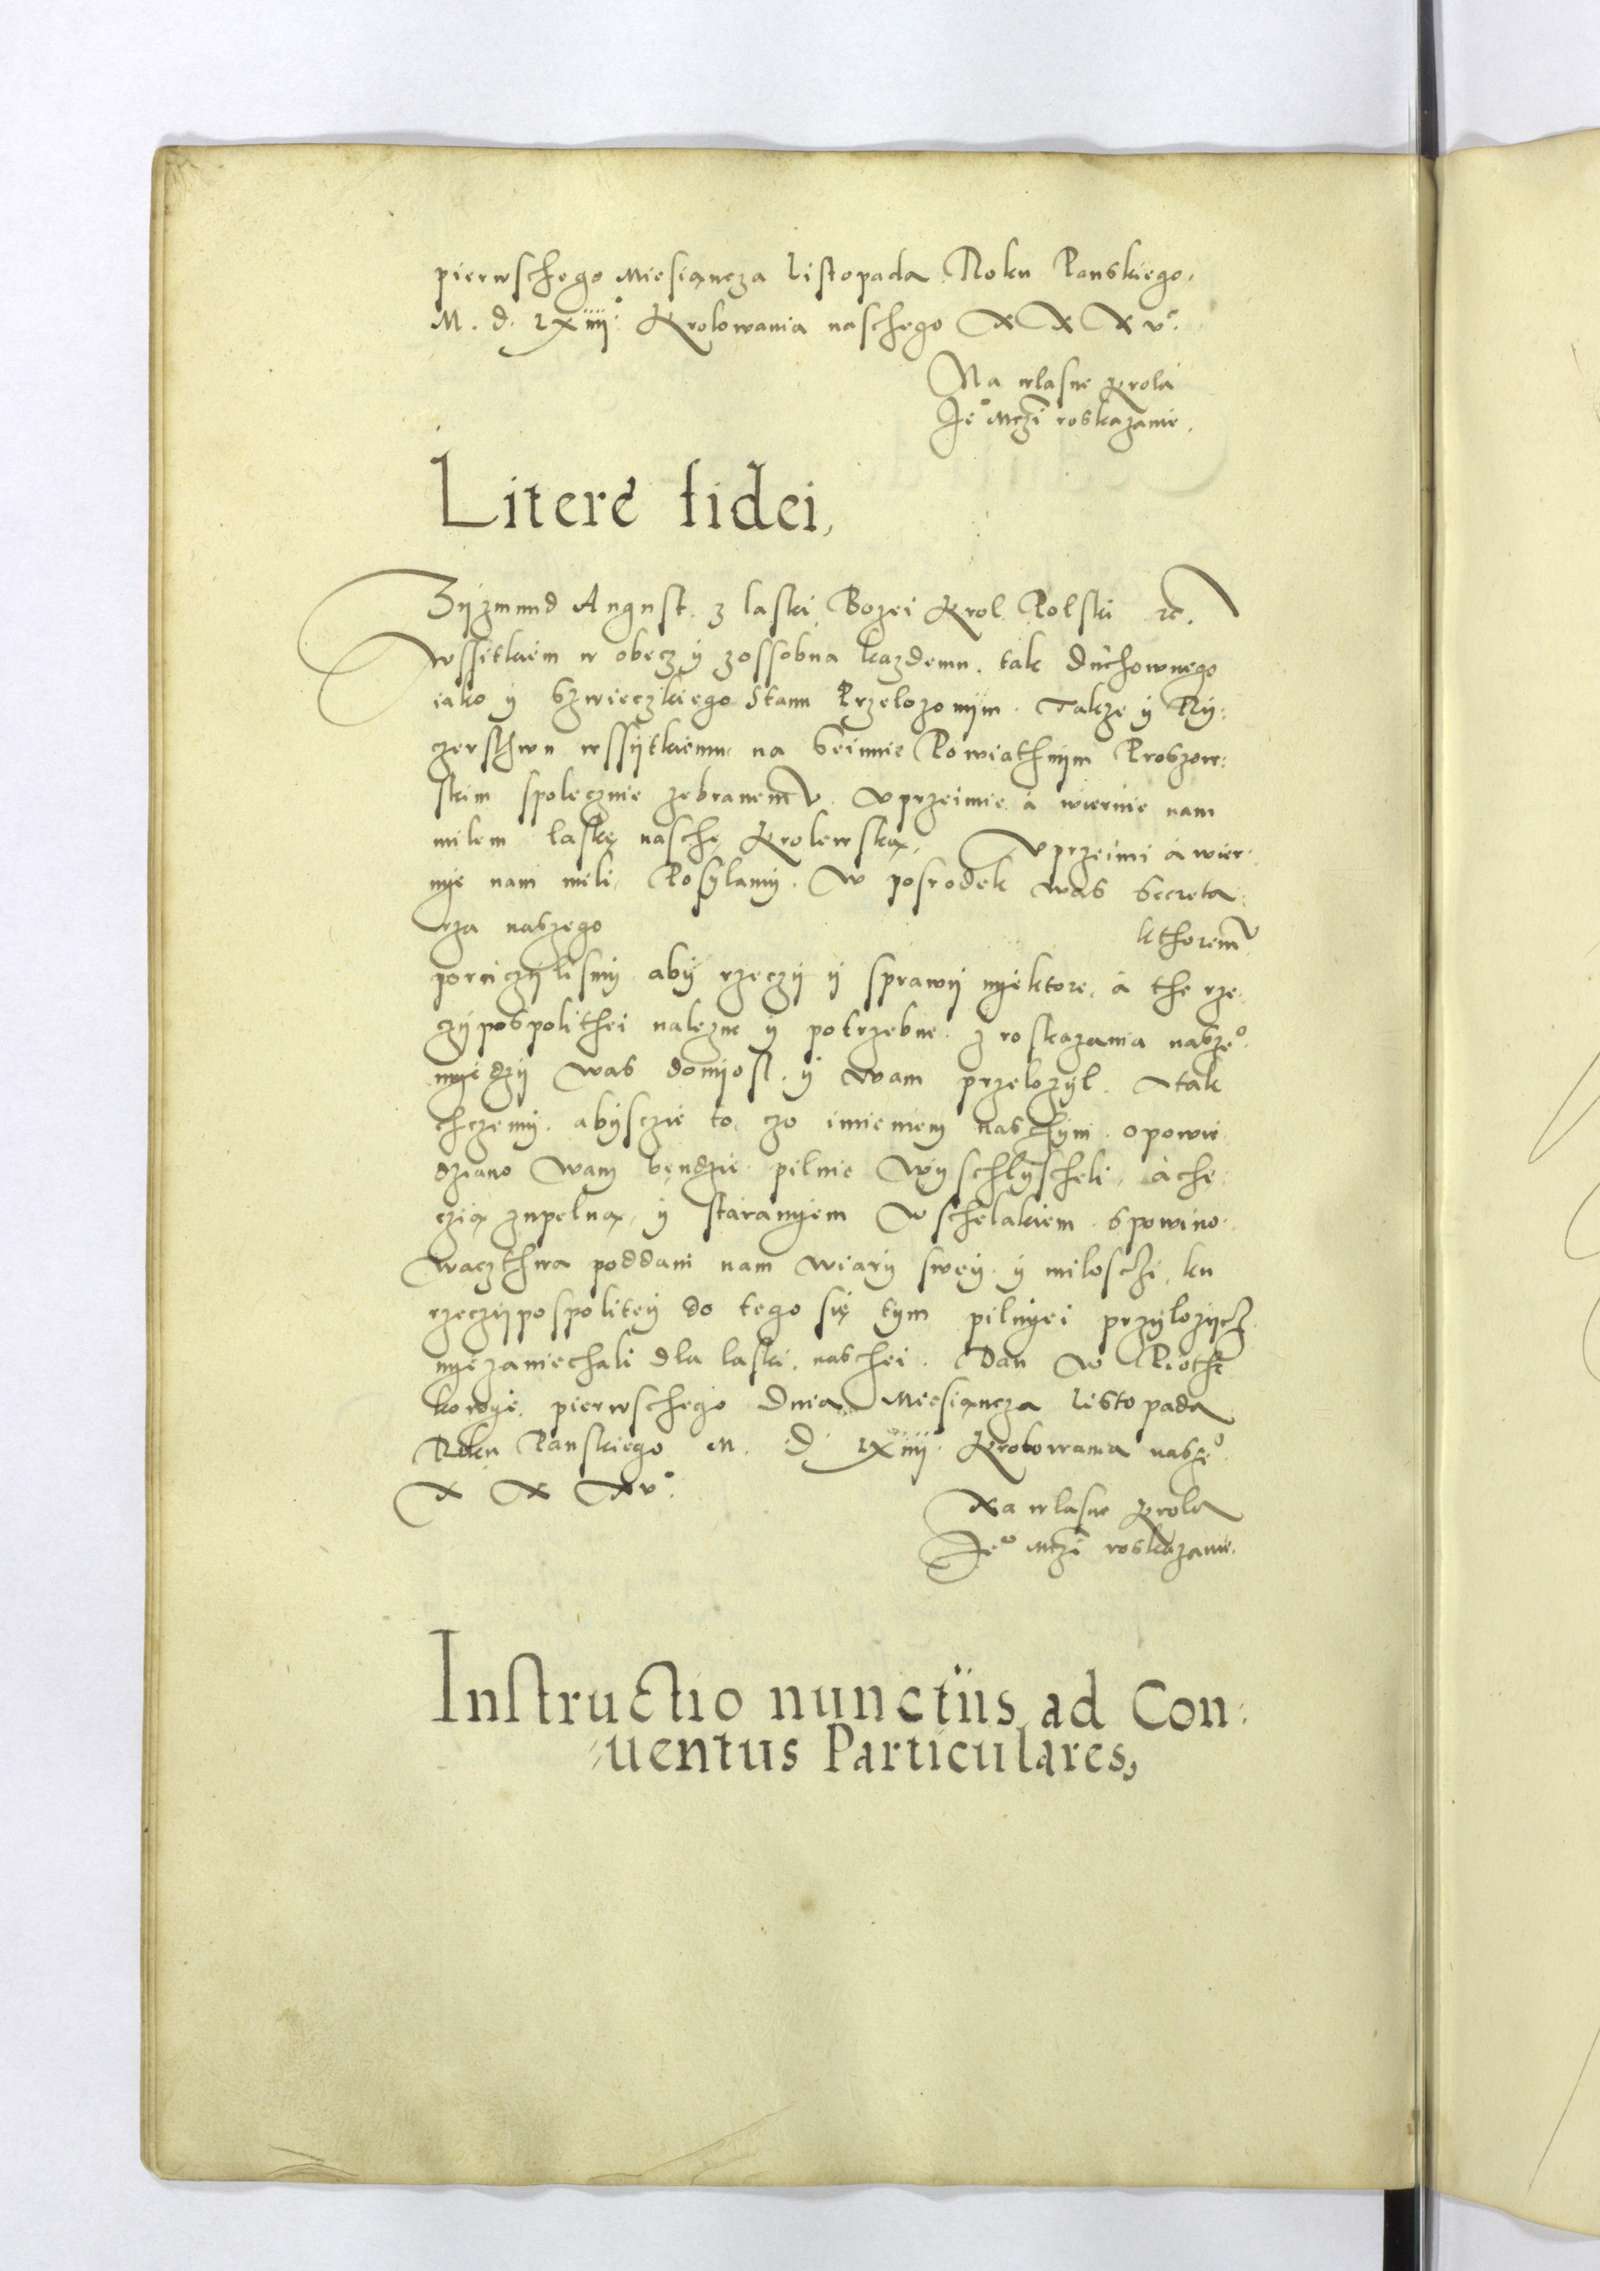 pierwschego Miesiancza Listopada Roku Panskiego,
M. d. lxiiii° Krolowania naschego XXXv°.
Na wlasne Krola
Je° Mczi roskazanie.
Litere fidei,
Zÿgmund August z laski Bozei Krol Polski etc.
wssitkiem w obecz ÿ zossobna kazdemu. tak duchownego
iako ÿ Szwieczkiego Stanu Przelozonÿm. Takze ÿ Rÿ:
czersthwu wssÿtkiemu na Seimie Powiathnÿm Proszow:
skim spolecznie zebranemu. Uprzeimie a wiernie nam
milem laskę naschę Krolewską, Uprzeimi a wier:
nÿe nam mili, Posÿlamÿ. w posrodek was Secreta:
rza naszego kthoremu
porucziliśmÿ abÿ rzeczÿ ÿ sprawÿ nÿektore, a the rze:
czÿpospolithei nalezne ÿ potrzebne z roskazania nasze°.
mÿedzÿ was donÿosl. ÿ wam przelozÿl. Atak
chczemÿ. abÿsczie to, czo imieniem naschÿm opowie
dziano wam bendzie pilnie wÿschlÿscheli, a che
czią zupelną, ÿ staranÿem wschelakiem spowino:
waczthwa poddani nam wiarÿ sweÿ ÿ milosczi, ku
rzeczÿpospoliteÿ do tego się tÿm pilnÿei przÿlozÿcz
nÿezaniechali dla laski naschei. Dan w Piothr
kowÿe, pierwschego Dnia Miesiancza Listopada
Roku Panskiego M. d. lxiiii° Krolowania nasze°
X X Xv°.
Na wlasne Krola
Je° Mczi roskazanie.
Instructio nunctiis ad Con:
uentus Particulares,